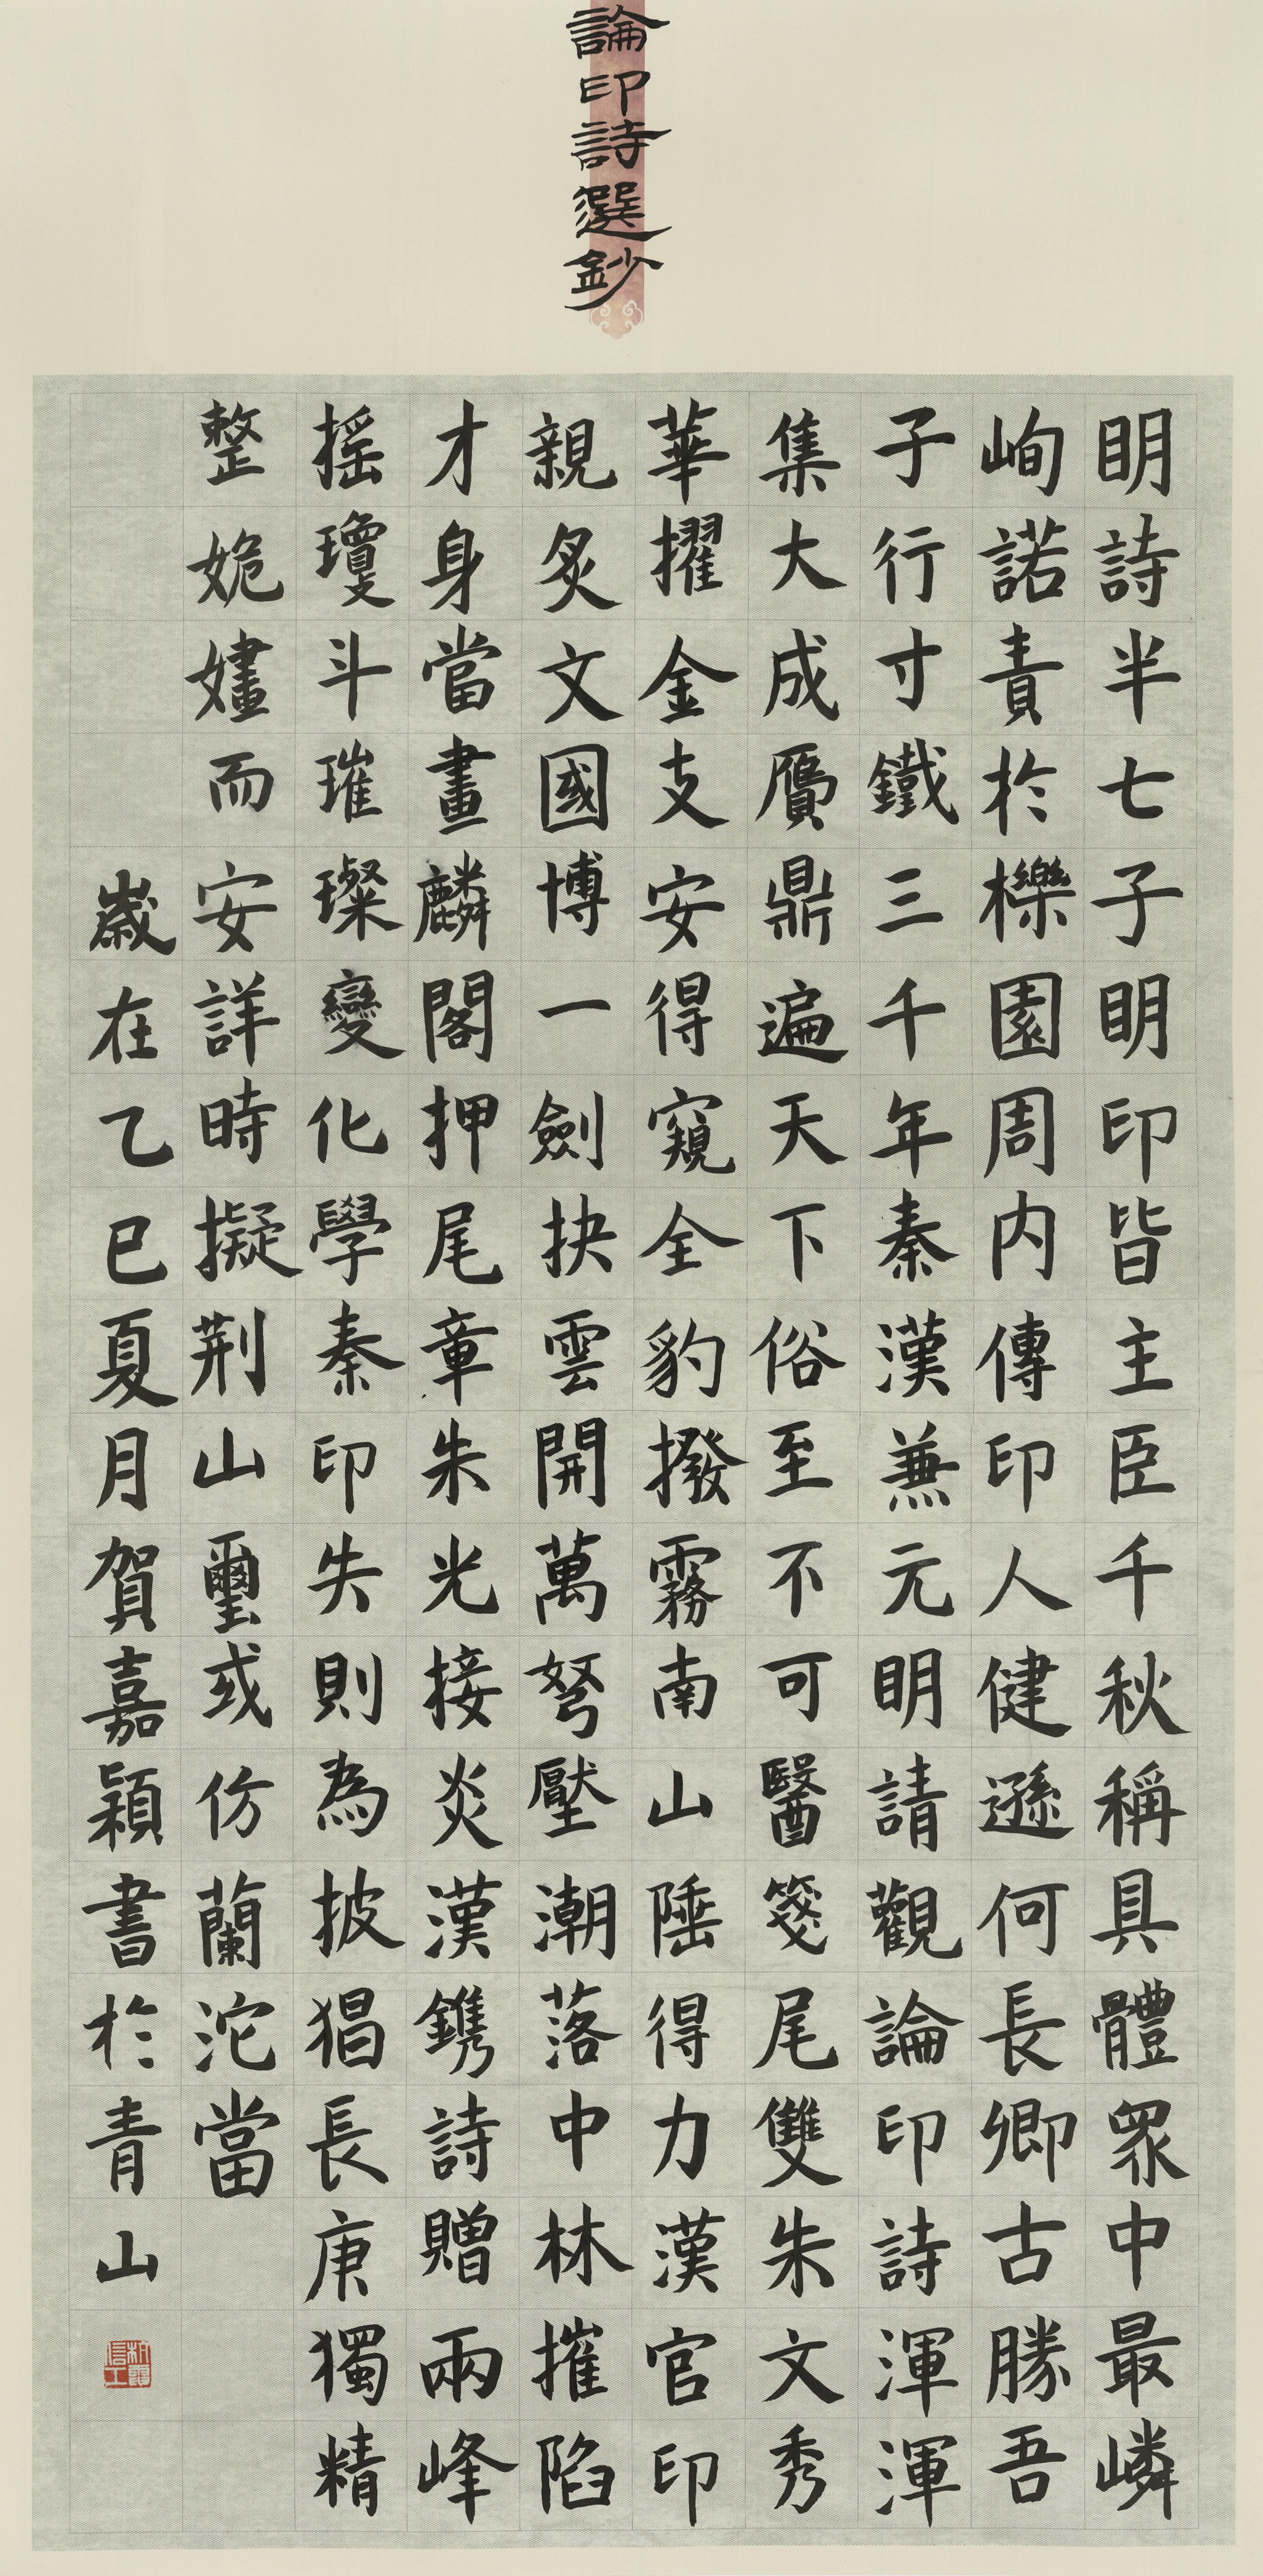 論印詩選鈔
明詩半七子明印皆主臣千秋稱具體眾中最嶙
峋諾責於櫟園周內傳印人健遜何長卿古勝吾
子行寸鐵三千年秦漢兼元明請觀論印詩渾渾
集大成贗鼎遍天下俗至不可醫箋尾雙朱文秀
華擢金支安得窺全豹撥霧南山陲得力漢官印
親炙文國博一劍抉雲開萬弩壓潮落中林摧陷
才身當畫麟閣押尾章朱光接炎漢鐫詩贈兩峰
搖瓊斗璀璨變化學秦印失則為披猖長庚獨精
整姽嫿而安詳時擬荆山璽或仿蘭沱當
歲在乙巳夏月賀嘉穎書於青山